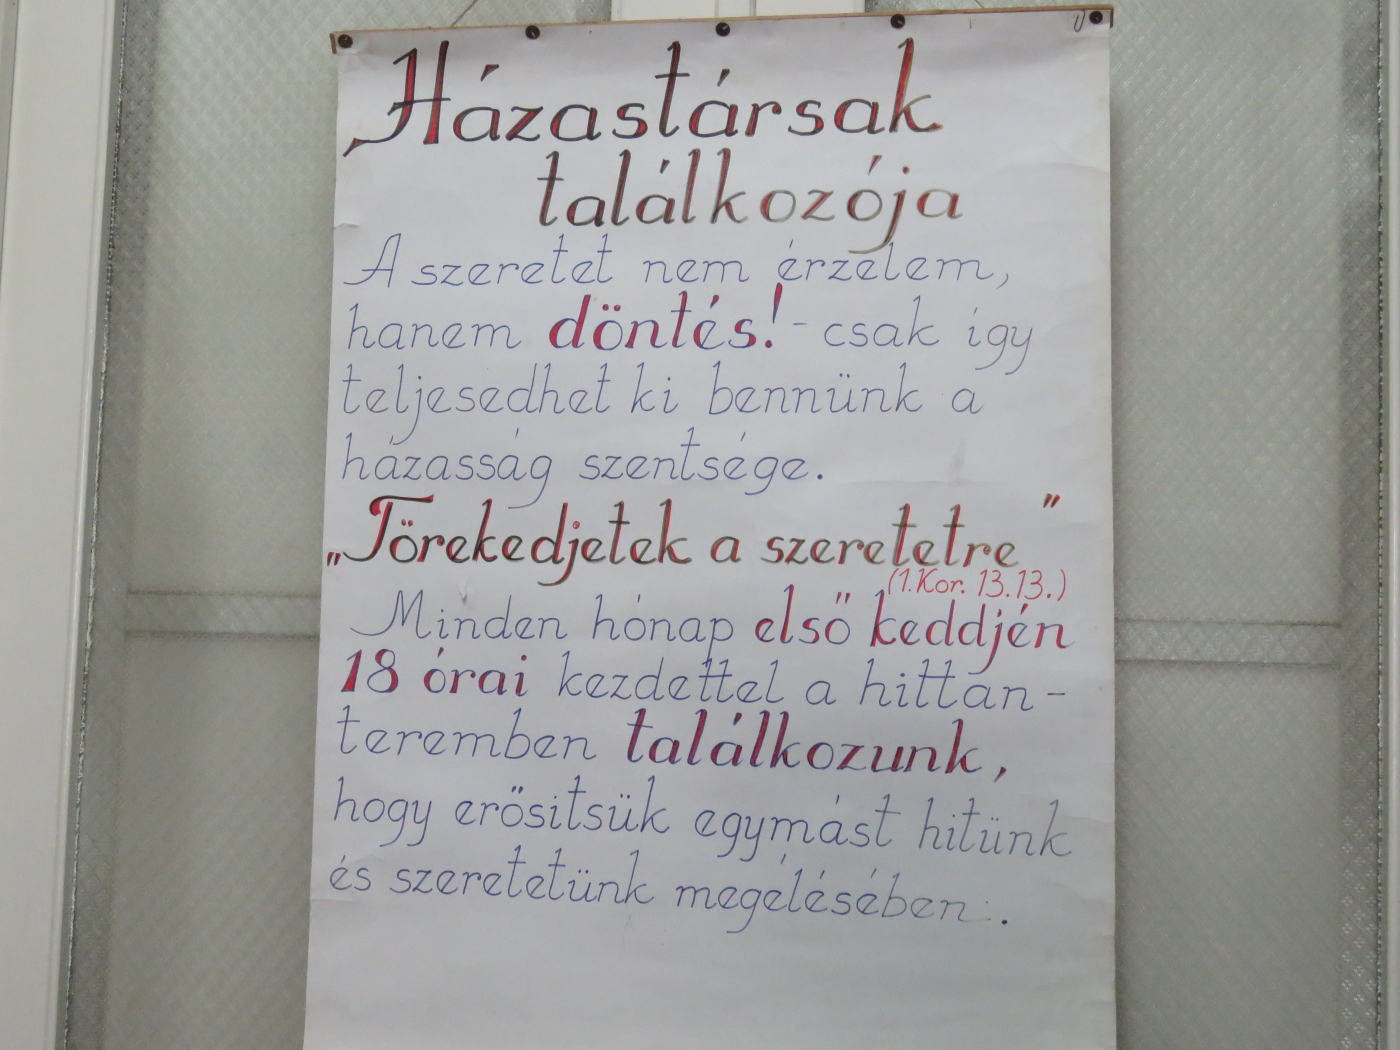 Házastársak
találkozója
A szeretet nem érzelem,
hanem döntés! - csak így
teljesedhet ki bennünk a
házasság szentsége.
„Törekedjetek a szeretetre"
(1.Kor. 13.13.)
Minden hónap első keddjén
18 órai kezdettel a hittan-
teremben találkozunk,
hogy erősitsük egymást hitünk
és szeretetünk megélésében.